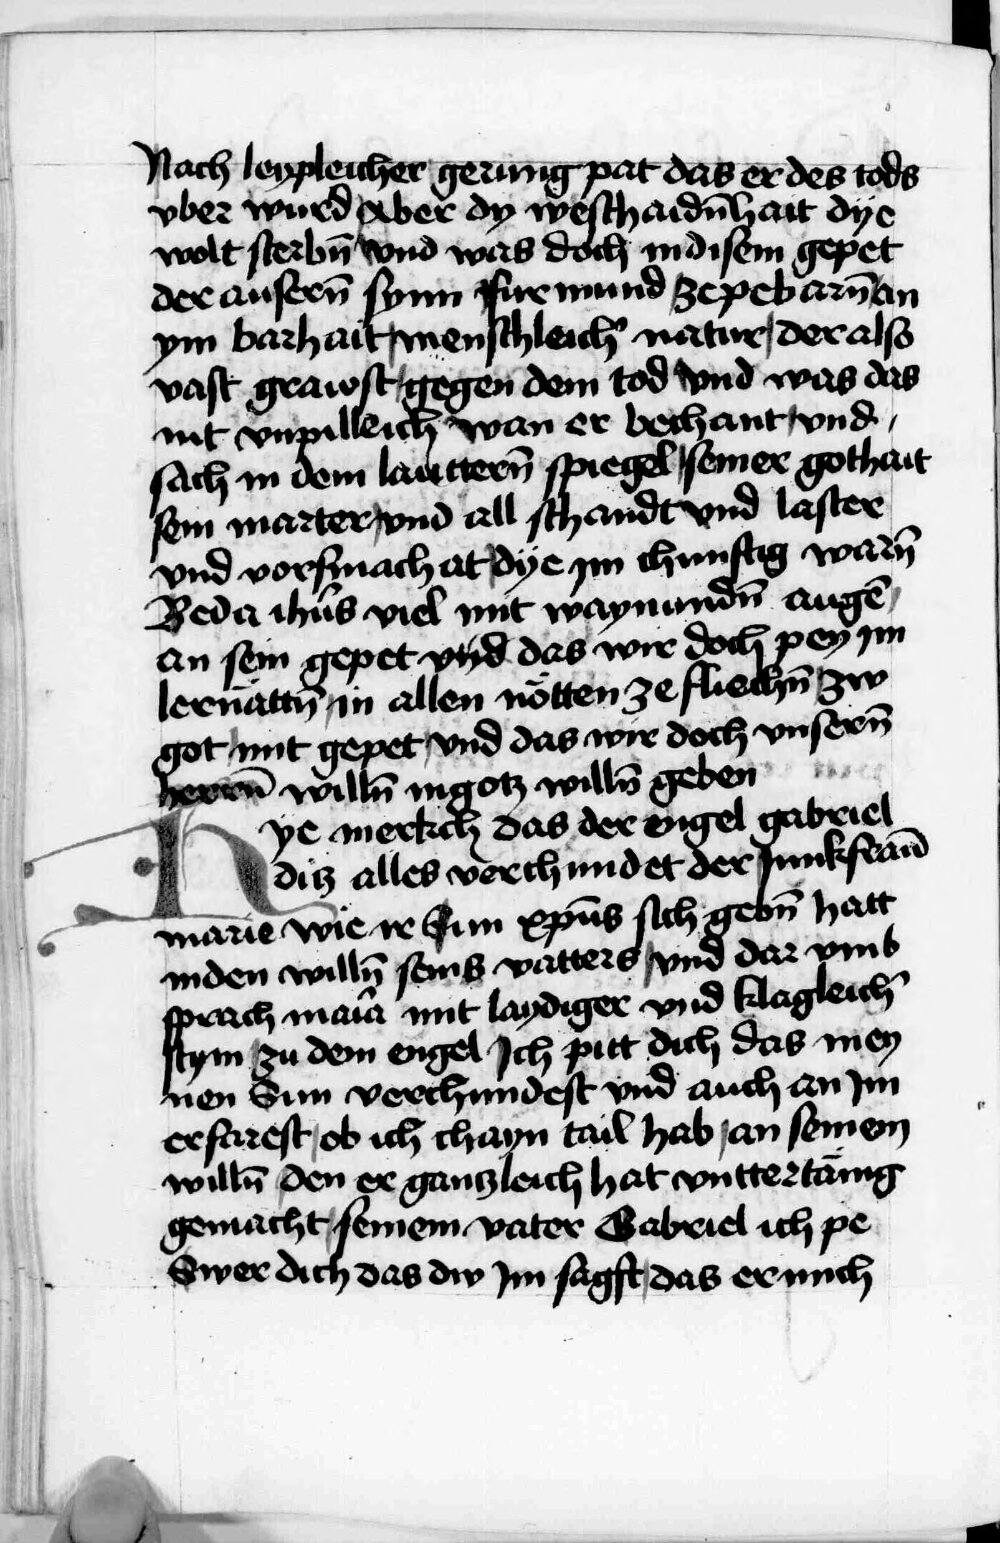 Nach leypleicher gerung pat das er des tods
vber wurd Aber dy weschaidn̄hait dye
wolt sterbn̄ vnd was doch in disem gepet
der ausern̄ synn fur mund ze pebarn̄ an
ym barhait menschleich̓ natur der also
vast grawst gegen dem tod vnd was das
nit vnpilleich wan er bechant vnd
sach in dem lauttern̄ spiegel seiner gothait
sein marter vnd all schandt vnd laster
vnd vorsmachat dye im chunftig warn̄
Beda ih̄us viel mit waynundn̄ augē
an sein gepet vnd das wir doch pey im
lernättn̄ in allen nötten ze fliechn̄ zw
got mit gepet vnd das wir doch vnsern̄
herrn̄ willn̄ in gotz willn̄ geben
Hye merkch das der engel gabriel
ditz alles verchundet der Junkfraū
marie wie ir Sun xp̄us sich gebn̄ hatt
in den willn̄ seins vatters vnd dar vmb
sprach maīa mit laydiger vnd klagleich̓
stym zu dem engel Ich pitt dich das mey
nen Sun verchundest vnd auch an Im
erfarest ob ich chayn tail hab an seinem
willn̄ den er gantzleich hat vnttertänig
gemacht seinem vater Gabriel ich pe
Swer dich das dw Im sagst das er mich